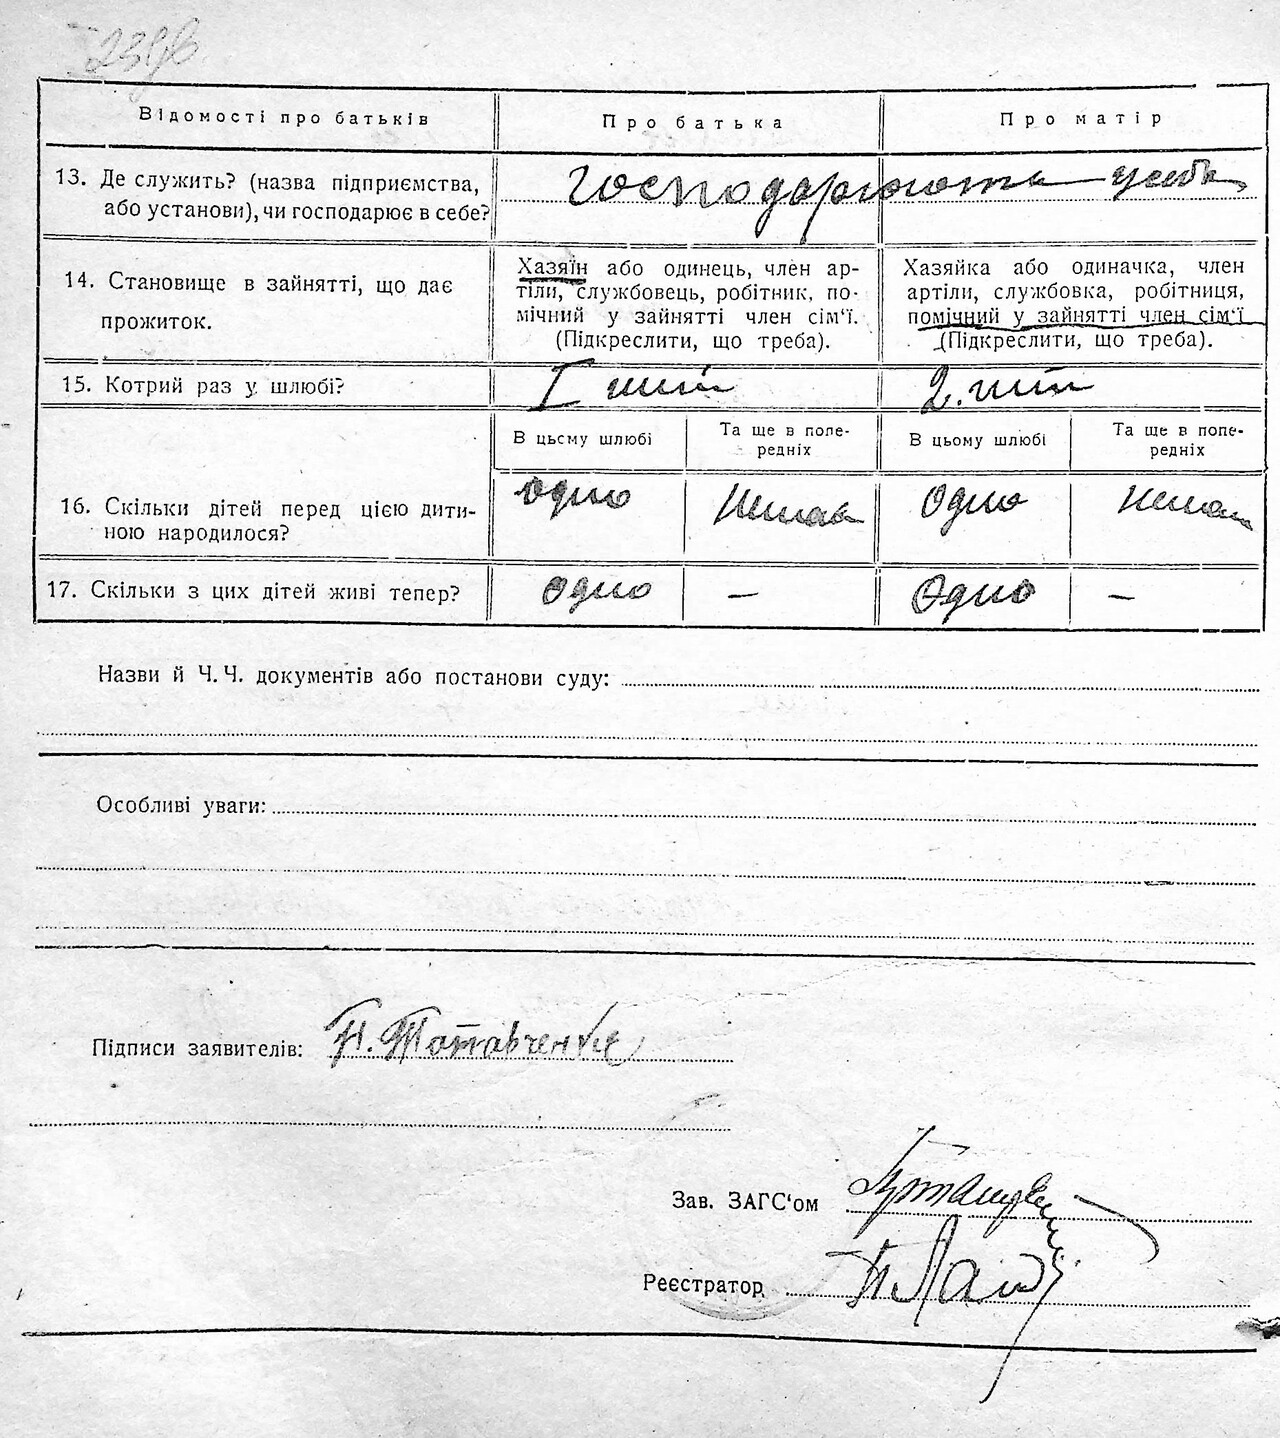 239в
Відомості про батьків
Про батька
Про матір
13. Де служить? (назва підприємства, або установи), чи господарює в себе?
господарюють у себе
14. Становище в зайнятті, що дає прожиток.
Хазяїн або одинець, член ар-
тіли, службовець, робітник, по-
мічний у зайнятті член сім'ї.
(Підкреслити, що треба).
Хазяйка або одиначка, член
артіли, службовка, робітниця,
помічний у зайнятті член сім'ї
(Підкреслити, що треба).
15. Котрий раз у шлюбі?
I
2.
В цьому шлюбі
Та ще в попе-
редніх
В цьому шлюбі
Та ще в попе-
редніх
16. Скільки дітей перед цією дити-
ною народилося?
одно
Немає
Одно
немає
17. Скільки з цих дітей живі тепер?
одно
—
Одно
—
Назви й Ч. Ч. документів або постанови суду:
Особливі уваги:
Підписи заявителів:
Зав. ЗАГС'ом
Реєстратор